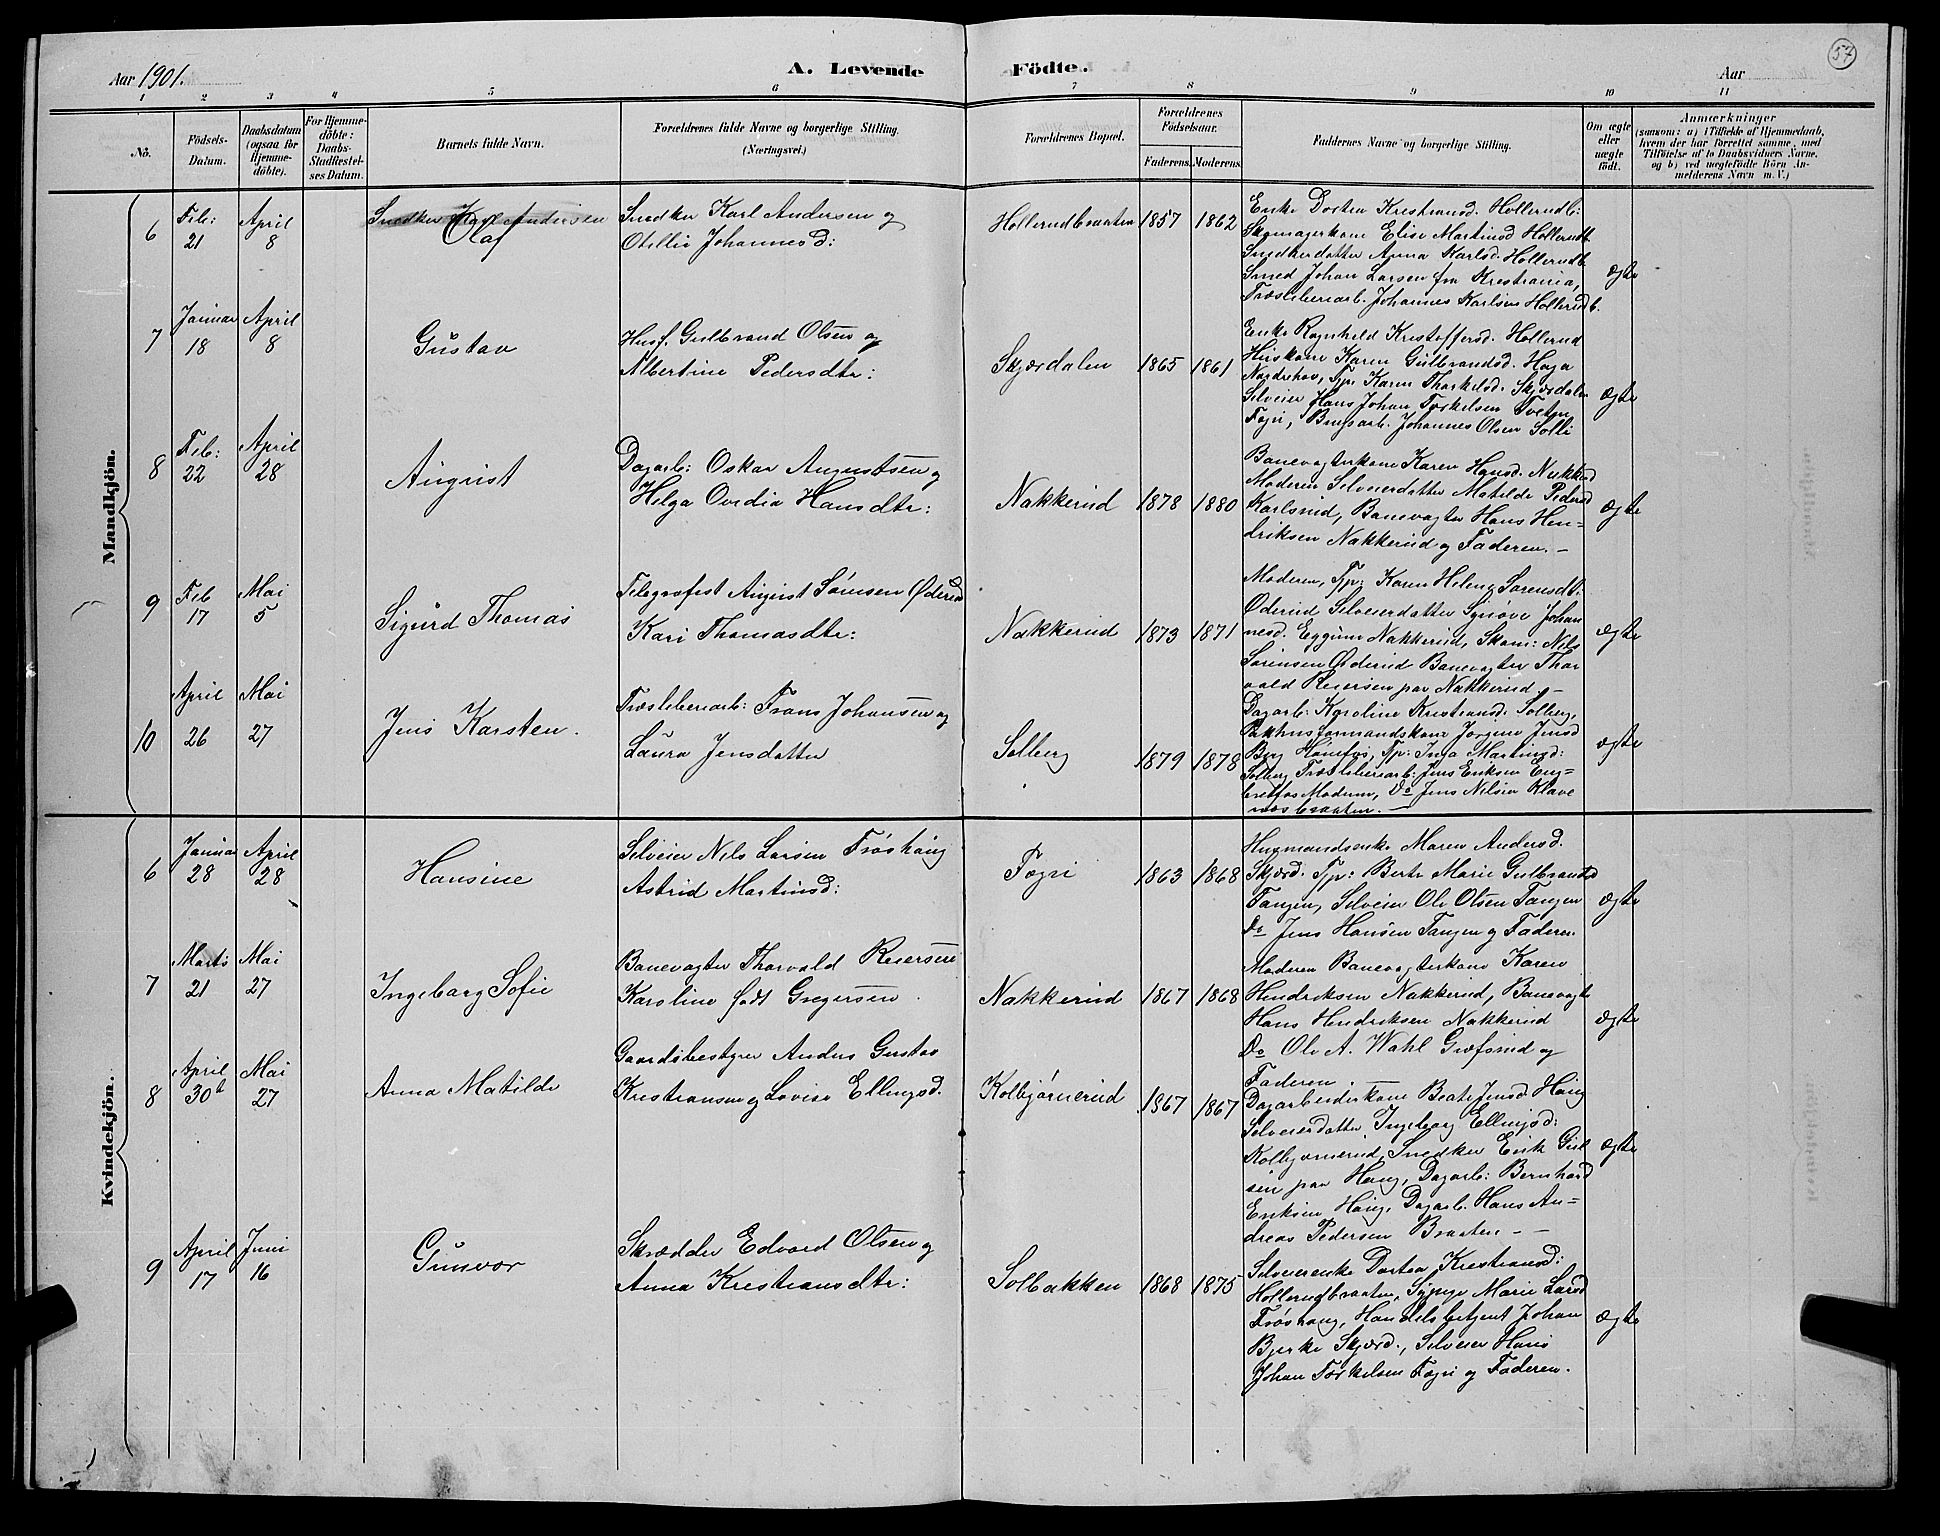 57
Aar 1901.
A. Levende Födte.
Aar
1 2 3 4 5 6 7 8 9 10 11
No.
Födsels-Datum.
Daabsdatum (ogsaa for Hjemme-döbte).
For Hjemme-döbte: Daabs-Stadfestel-ses Datum.
Barnets fulde Navn.
Forældrenes fulde Navne og borgerlige Stilling. (Næringsvei.)
Forældrenes Bopæl.
Forældrenes Födselsaar.
Faderens. Moderens.
Faddernes Navne og borgerlige Stilling.
Om ægte eller uægte födt.
Anmærkninger
(saasom: a) i Tilfælde af Hjemmedaab, hvem der har forrettet samme, med Tilföielse af to Daabsvidners Navne, og b) ved uægtefödte Börn An-melderens Navn m. V.)
Mandkjön.
6 Feb: 21 April 8
Snedker Karl Andersen
Olaf
Snedker Karl Andersen og
Otellie Johannesd:
Hollerudbraaten 1857 1862
Enke Dortea Kristiansd. Hollerudb:
Skomagerkone Elise Martinsd Hollerudb.
Snedkerdatter Anna Karlsd. Hollerudb.
Smed Johan Larsen fra Kristiania,
Træsliberiarb. Johannes Karlsen Hollerudb.
ægte
7 Januar 18 April 8
Gustav
Husf. Gulbrand Olsen og
Albertine Pedersdtr:
Skjærdalen 1865 1861
Enke Ragnhild Kristoffersd. Hollerud
Huskone Karen Gulbrandsd. Haga
Norderhov, Tp. Karen Thorkelsd. Skjærdalen
Selveier Hans Johan Torkelsen Tveten
Fegri, Brugsarb. Johannes Olsen Solli
ægte
8 Feb: 22 April 28
August
Dagarb: Oskar Augustsen og
Helga Ovedia Hansdtr:
Nakkerud 1878 1880
Banevogterkone Karen Hansd. Nakkerud
Moderen Selveierdatter Matilde Pedersd
Karlsrud, Banevogter Hans Hen=
driksen Nakkerud og Faderen. —
ægte
9 Feb 17 Mai 5
Sigurd Thomas
Telegrafist August Sørensen Øderud
Kari Thomasdtr:
Nakkerud 1873 1871
Moderen, Tp: Karen Helene Sørensdt:
Øderud Selveierdatter Synøve Johan
nesd. Eggum Nakkerud, Skom: Nils
Sørensen Øderud Banevogter Thor
vald Reiersen paa Nakkerud. —
ægte
10 April 26 Mai 27
Jens Karsten.
Træsliberiarb: Frans Johansen og
Laura Jensdatter
Solberg 1879 1878
Dagarb: Karoline Kristiansd. Solberg,
Pakhusformandskone Jørgine Jensd
Berg Hønefos, Tp: Inga Martinsd:
Solberg Træsliberiarb: Jens Eriksen Eng=
bretfos Modum, Do Jens Nilsen Klave
næsbraaten. —
ægte
Kvindekjön.
6 Januar 28 April 28
Hansine
Selveier Nils Larsen Frøshaug
Astrid Martinsd:
Fegri 1863 1868
Husmandsenke Maren Andersd.
Skjærd. Tp: Berte Marie Gulbrandsd
Tangen, Selveier Ole Olsen Tangen
Do Jens Hansen Tangen og Faderen.
ægte
7 Marts 21 Mai 27
Ingeborg Sofie
Banevogter Thorvald Reiersen
Karoline født Gregersen.
Nakkerud 1867 1868
Moderen Banevogterkone Karen
Hendriksen Nakkerud, Banevogter
Hans Hendriksen Nakkerud
Do Ole A. Wahl Græfsrud og
Faderen. —
ægte
8 April 30te Mai 27
Anna Matilde
Gaardsbestyrer Anders Gustav
Kristiansen og Lovise Ellingsd.
Kolbjørnerud 1867 1867
Dagarbeiderskone Beate Jensd Haug
Selveierdatter Ingeborg Ellingsd:
Kolbjørnerud, Snedker Erik Giul
sen paa Haug, Dagarb: Bernhard
Eriksen Haug, Dagarb. Hans An=
dreas Pedersen Braaten — —
ægte
9 April 17 Juni 16
Gunvor
Skrædder Edvard Olsen og
Anna Kristiansdtr:
Solbakken 1868 1875
Selveierenke Dortea Kristiansd:
Hollerudbraaten, Sypige Marie Larsd
Frøshaug, Handelsbetjent Johan
Bjerke Skjærd., Selveier Hans
Johan Torkelsen Fegri og Faderen.
ægte